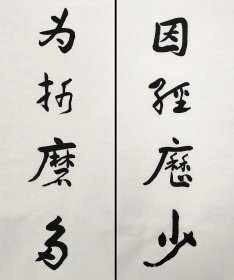 因經歷少
为折磨多